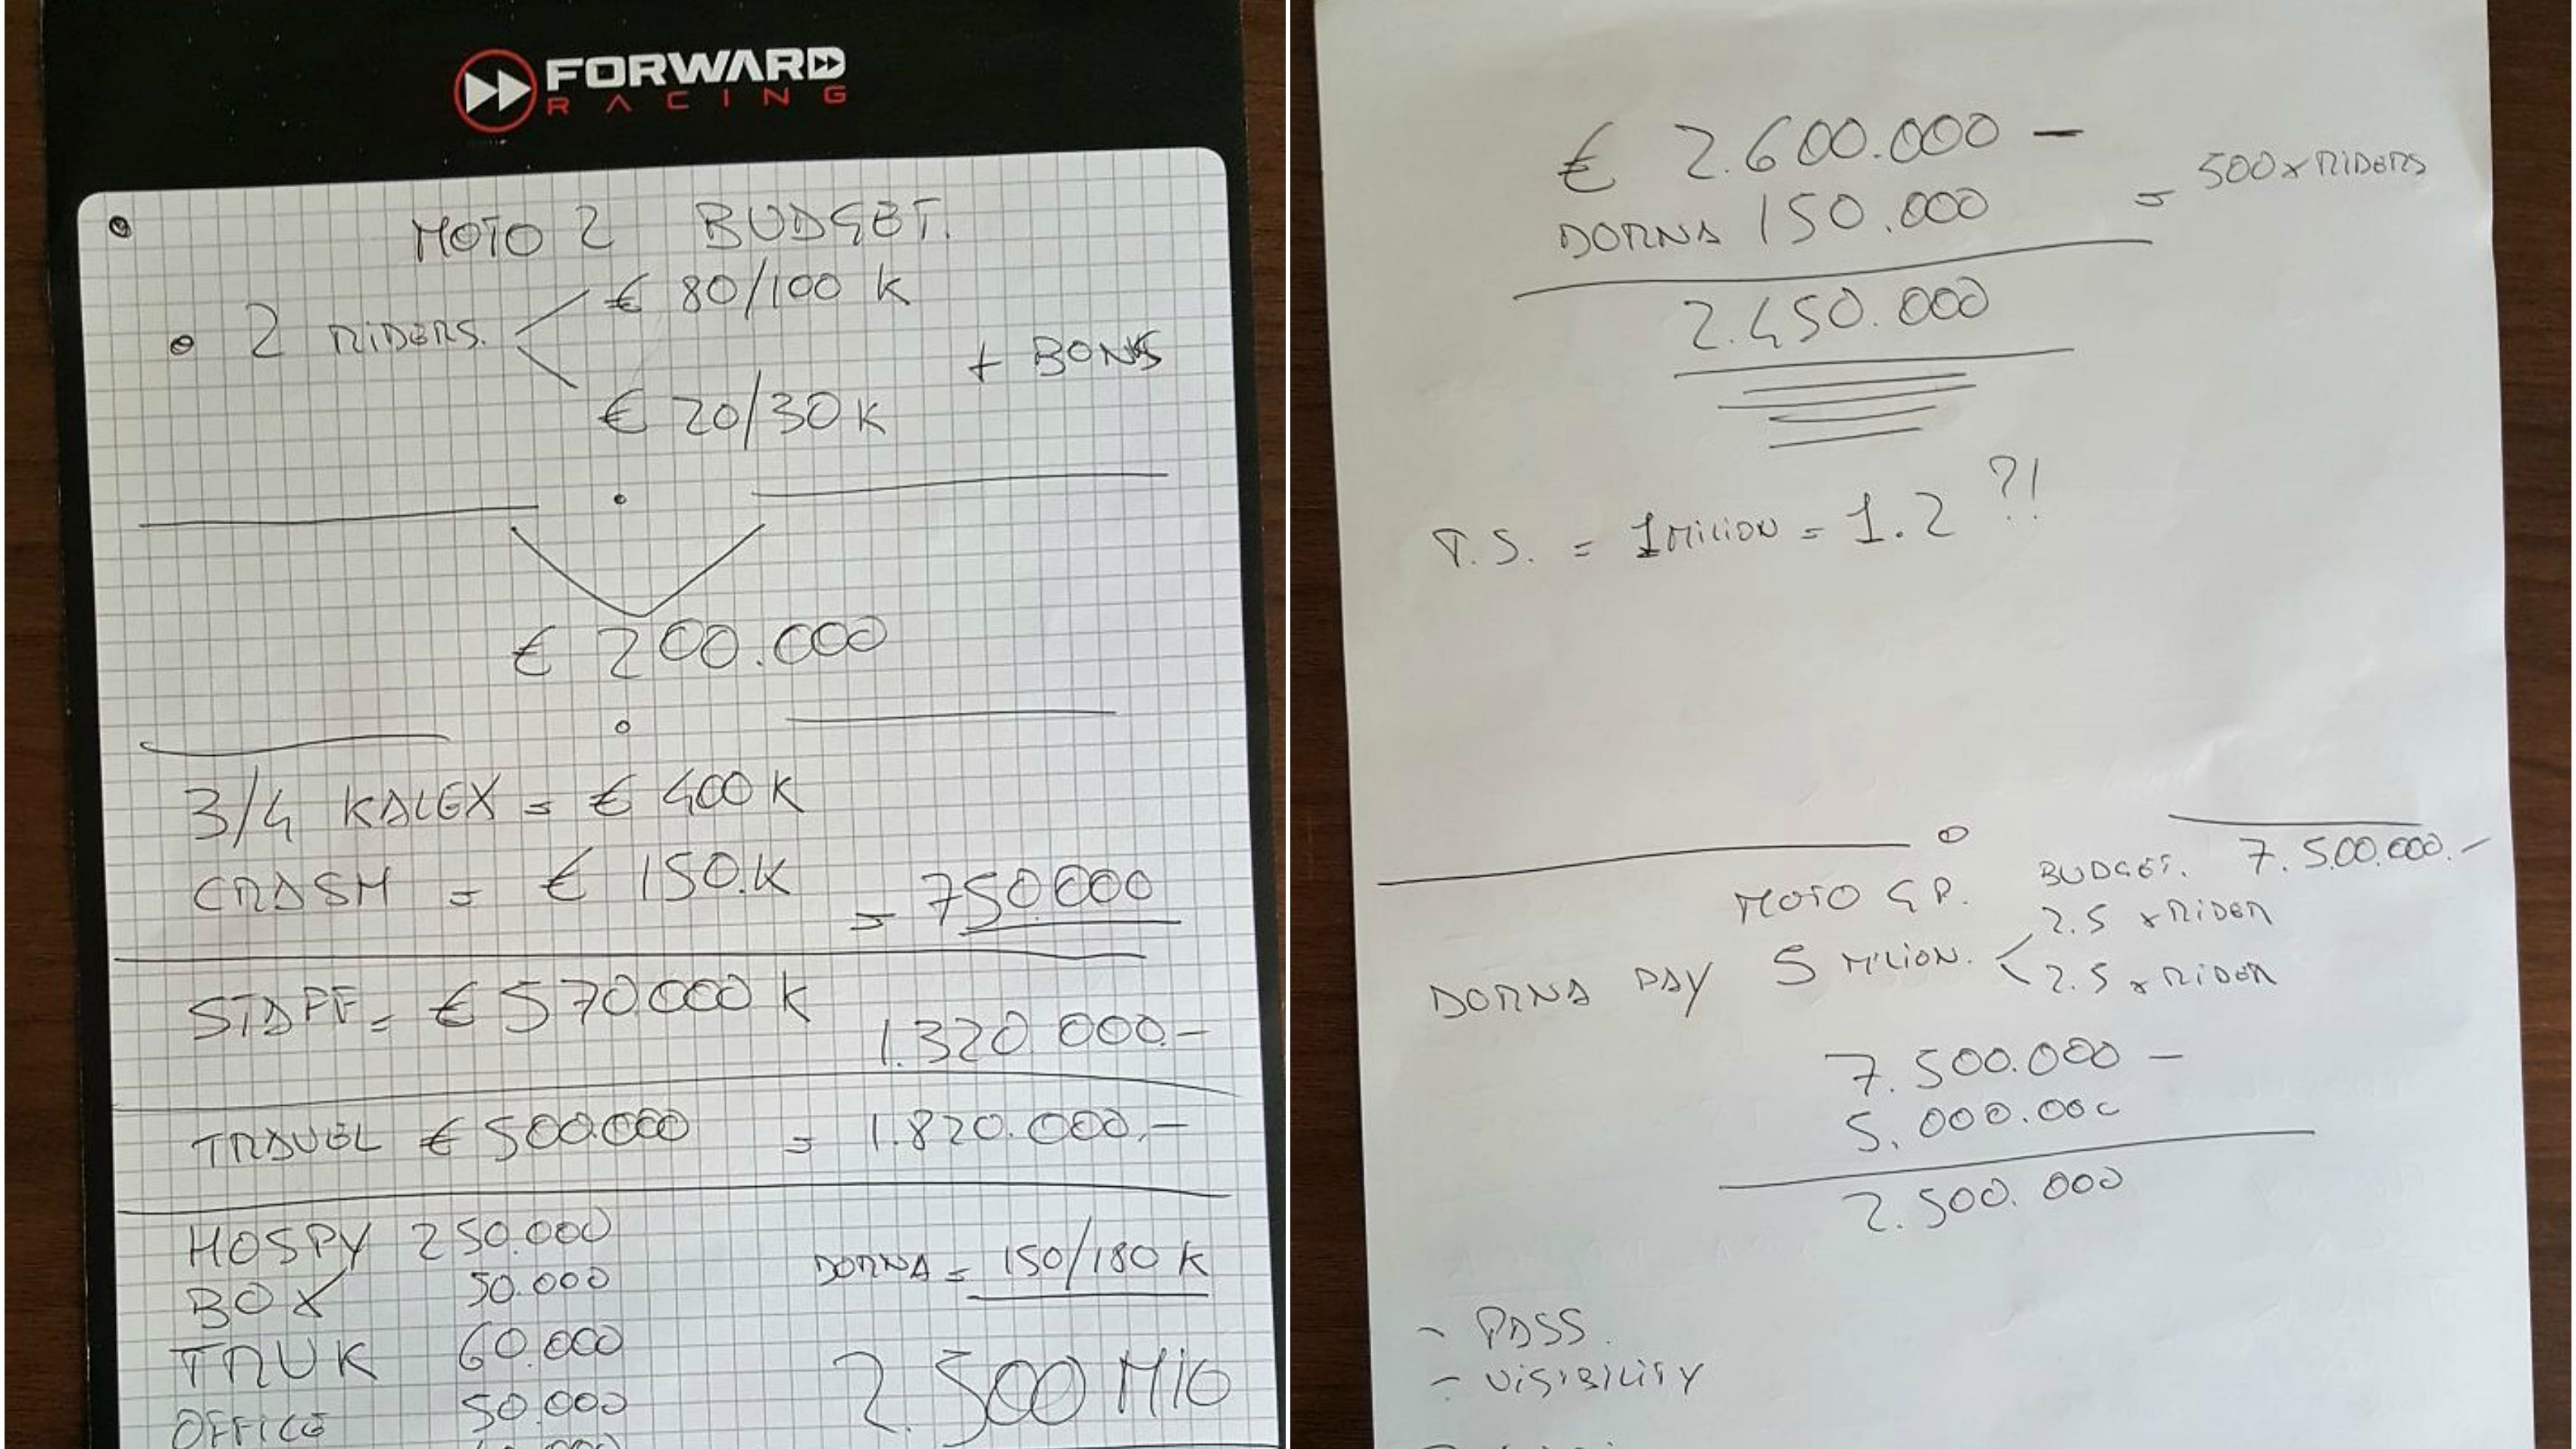 FORWARD
RACING
MOTO 2 BUDGET.
2 RIDERS. € 80/100 K
€ 20/30 K + BONUS
€ 200.000
3/4 KALEX = € 400 K
CRASH = € 150.K = 750.000
STAFF = € 570.000 K 1.320.000.-
TRAVEL € 500.000 = 1.820.000.-
HOSPY 250.000
BOX 50.000 DORNA = 150/180 K
TRUK 60.000
OFFICE 50.000 2.500 MIO
€ 2.600.000 -
DORNA 150.000 = 500 x RIDERS
2.450.000
T.S. = 1 MILION = 1.2 ?!
MOTO GP. BUDGET. 7.500.000.-
DORNA PAY 5 MILION. 2.5 x RIDER
2.5 x RIDER
7.500.000 -
5.000.000
2.500.000
- PASS.
- VISIBILITY